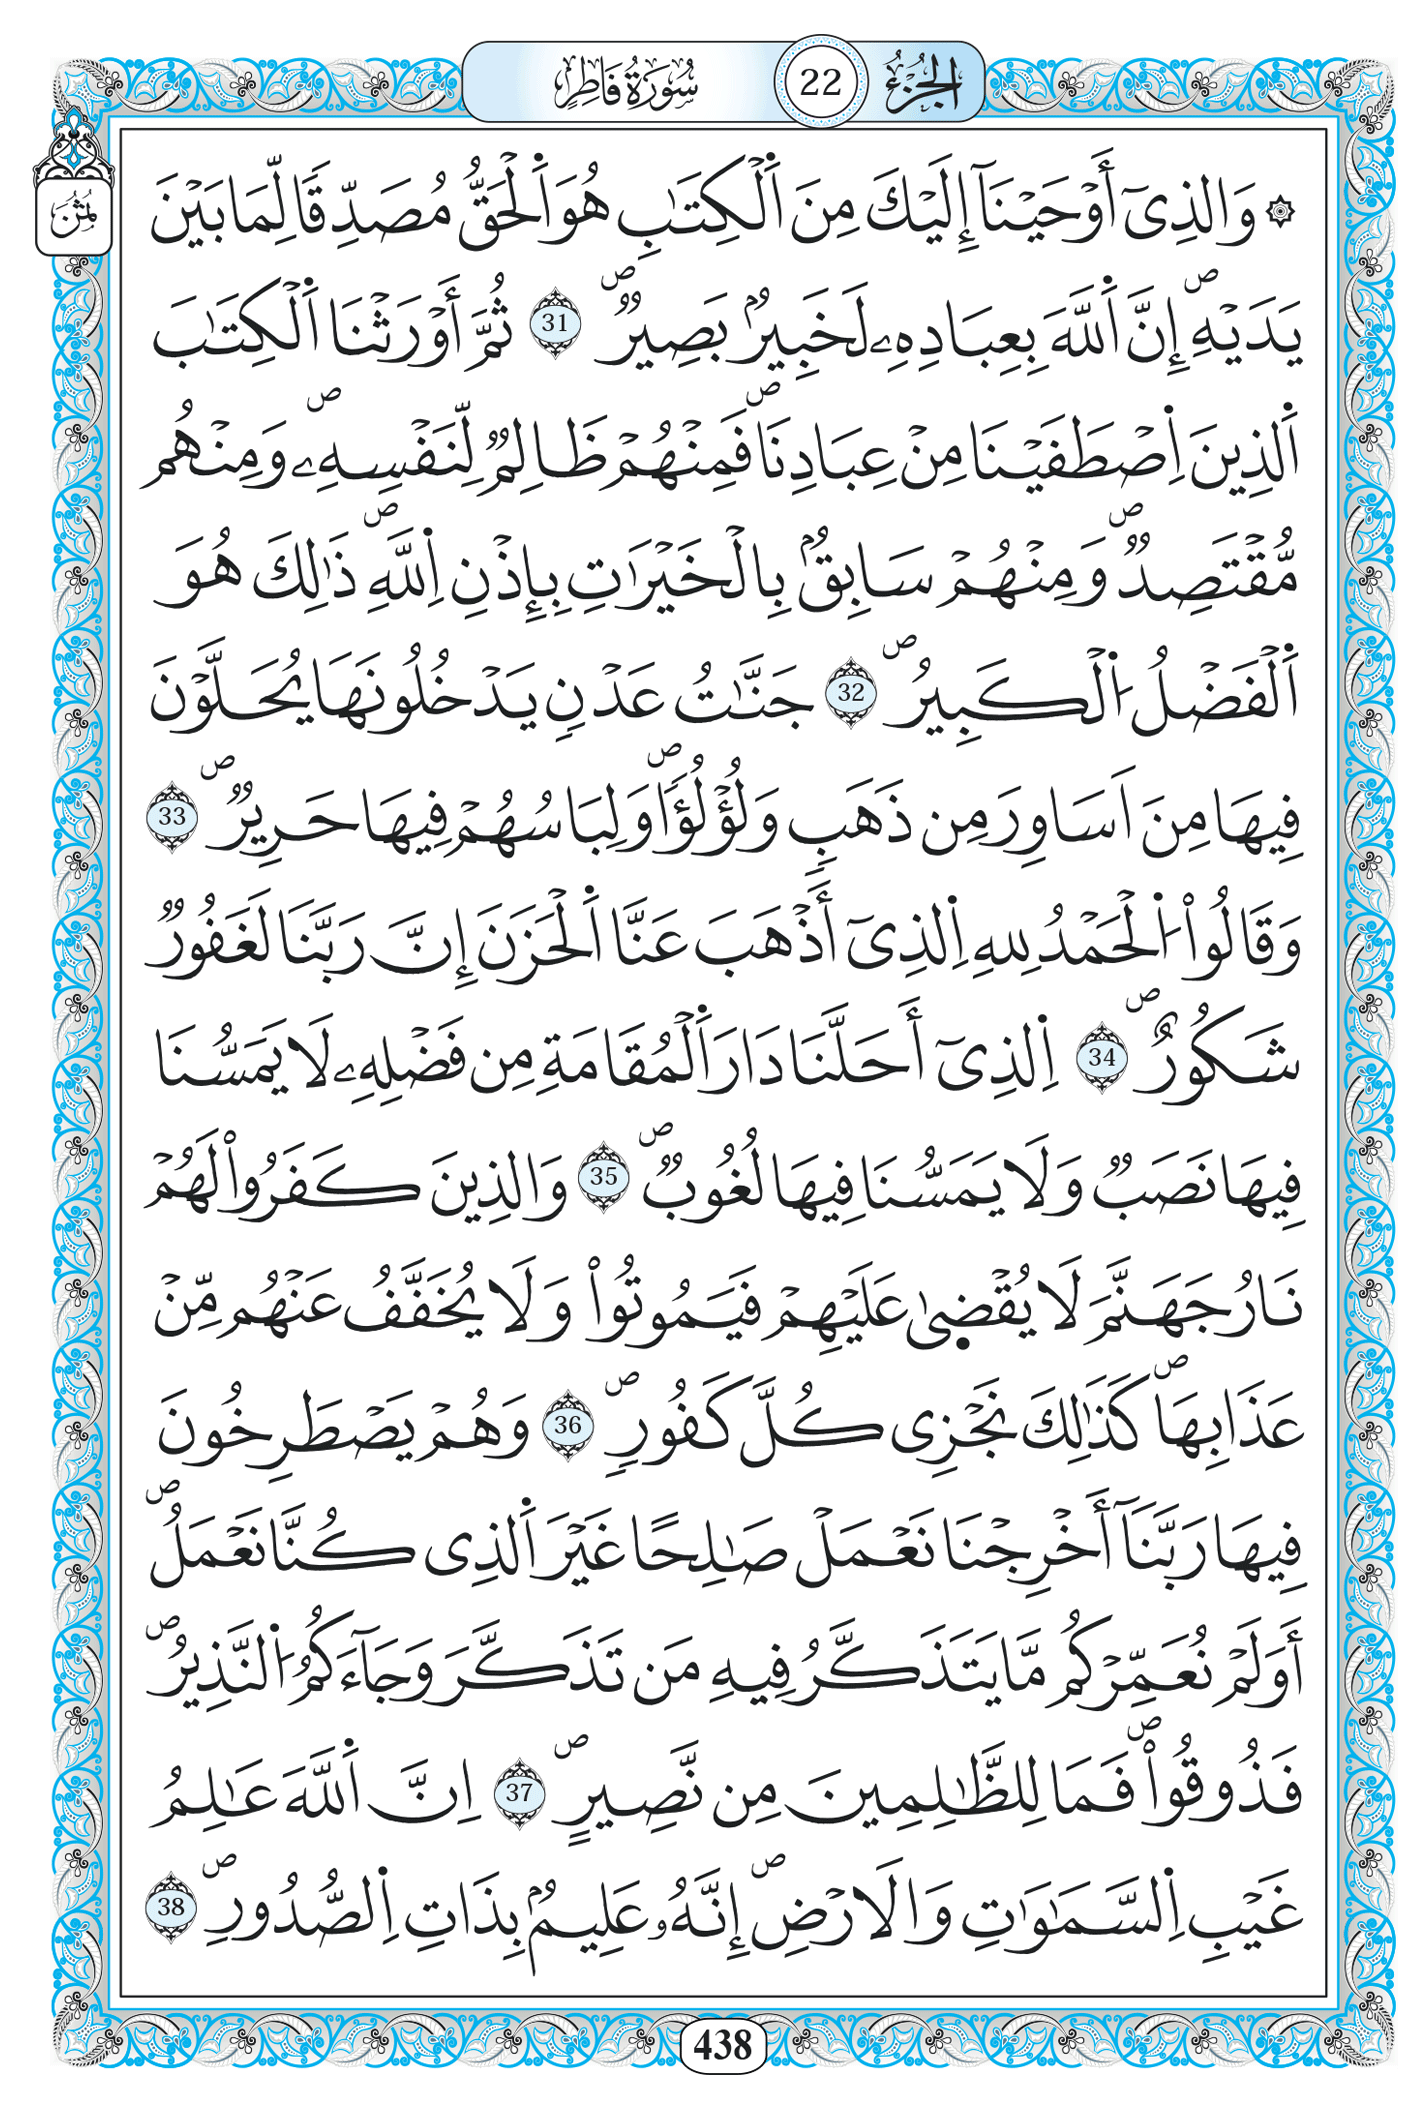 الجُزْءُ 22 سُورَةُ فَاطِرٍ
ثُمُنٌ
۞ وَالذِىٓ أَوْحَيْنَآ إِلَيْكَ مِنَ اَ۬لْكِتَٰبِ هُوَ اَ۬لْحَقُّ مُصَدِّقاٗ لِّمَا بَيْنَ
يَدَيْهِۖ إِنَّ اَ۬للَّهَ بِعِبَادِهِۦ لَخَبِيرُۢ بَصِيرٞۖ 31 ثُمَّ أَوْرَثْنَا اَ۬لْكِتَٰبَ
اَ۬لذِينَ اَ۪صْطَفَيْنَا مِنْ عِبَادِنَاۖ فَمِنْهُمْ ظَالِمٞ لِّنَفْسِهِۦۖ وَمِنْهُم
مُّقْتَصِدٞۖ وَمِنْهُمْ سَابِقُۢ بِالْخَيْرَٰتِ بِإِذْنِ اِ۬للَّهِۖ ذَٰلِكَ هُوَ
اَ۬لْفَضْلُ اُ۬لْكَبِيرُۖ 32 جَنَّٰتُ عَدْنٖ يَدْخُلُونَهَا يُحَلَّوْنَ
فِيهَا مِنَ اَسَاوِرَ مِن ذَهَبٖ وَلُؤْلُؤاٗۖ وَلِبَاسُهُمْ فِيهَا حَرِيرٞۖ 33
وَقَالُواْ اُ۬لْحَمْدُ لِلهِ اِ۬لذِىٓ أَذْهَبَ عَنَّا اَ۬لْحَزَنَ إِنَّ رَبَّنَا لَغَفُورٞ
شَكُورٌۖ 34 اِ۬لذِىٓ أَحَلَّنَا دَارَ اَ۬لْمُقَامَةِ مِن فَضْلِهِۦ لَا يَمَسُّنَا
فِيهَا نَصَبٞ وَلَا يَمَسُّنَا فِيهَا لُغُوبٞۖ 35 وَالذِينَ كَفَرُواْ لَهُمْ
نَارُ جَهَنَّمَ لَا يُقْضۭىٰ عَلَيْهِمْ فَيَمُوتُواْ وَلَا يُخَفَّفُ عَنْهُم مِّنْ
عَذَابِهَاۖ كَذَٰلِكَ نَجْزِى كُلَّ كَفُورٖۖ 36 وَهُمْ يَصْطَرِخُونَ
فِيهَا رَبَّنَآ أَخْرِجْنَا نَعْمَلْ صَٰلِحًا غَيْرَ اَ۬لذِى كُنَّا نَعْمَلُۖ
أَوَلَمْ نُعَمِّرْكُم مَّا يَتَذَكَّرُ فِيهِ مَن تَذَكَّرَ وَجَآءَكُمُ اُ۬لنَّذِيرُۖ
فَذُوقُواْۖ فَمَا لِلظَّٰلِمِينَ مِن نَّصِيرٍۖ 37 اِنَّ اَ۬للَّهَ عَٰلِمُ
غَيْبِ اِ۬لسَّمَٰوَٰتِ وَالَارْضِۖ إِنَّهُۥ عَلِيمُۢ بِذَاتِ اِ۬لصُّدُورِۖ 38
438